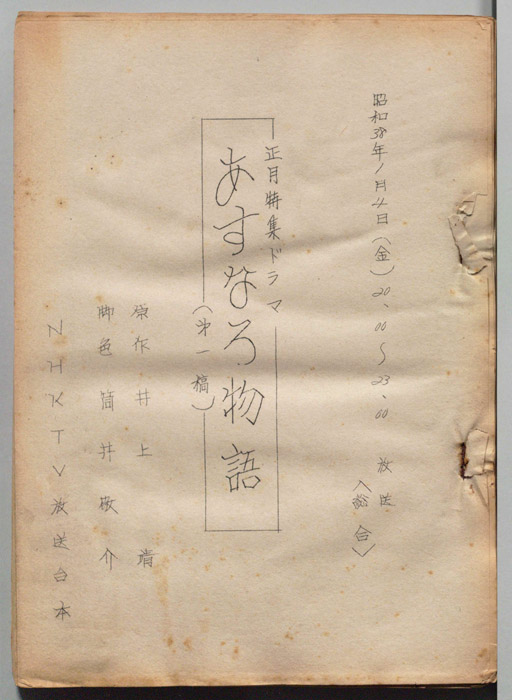 昭和38年1月4日（金）20、00〜23、00 放送
〈総合〉
正月特集ドラマ
あすなろ物語
（第一稿）
原作 井上 靖
脚色 筒井敬介
NHKTV放送台本